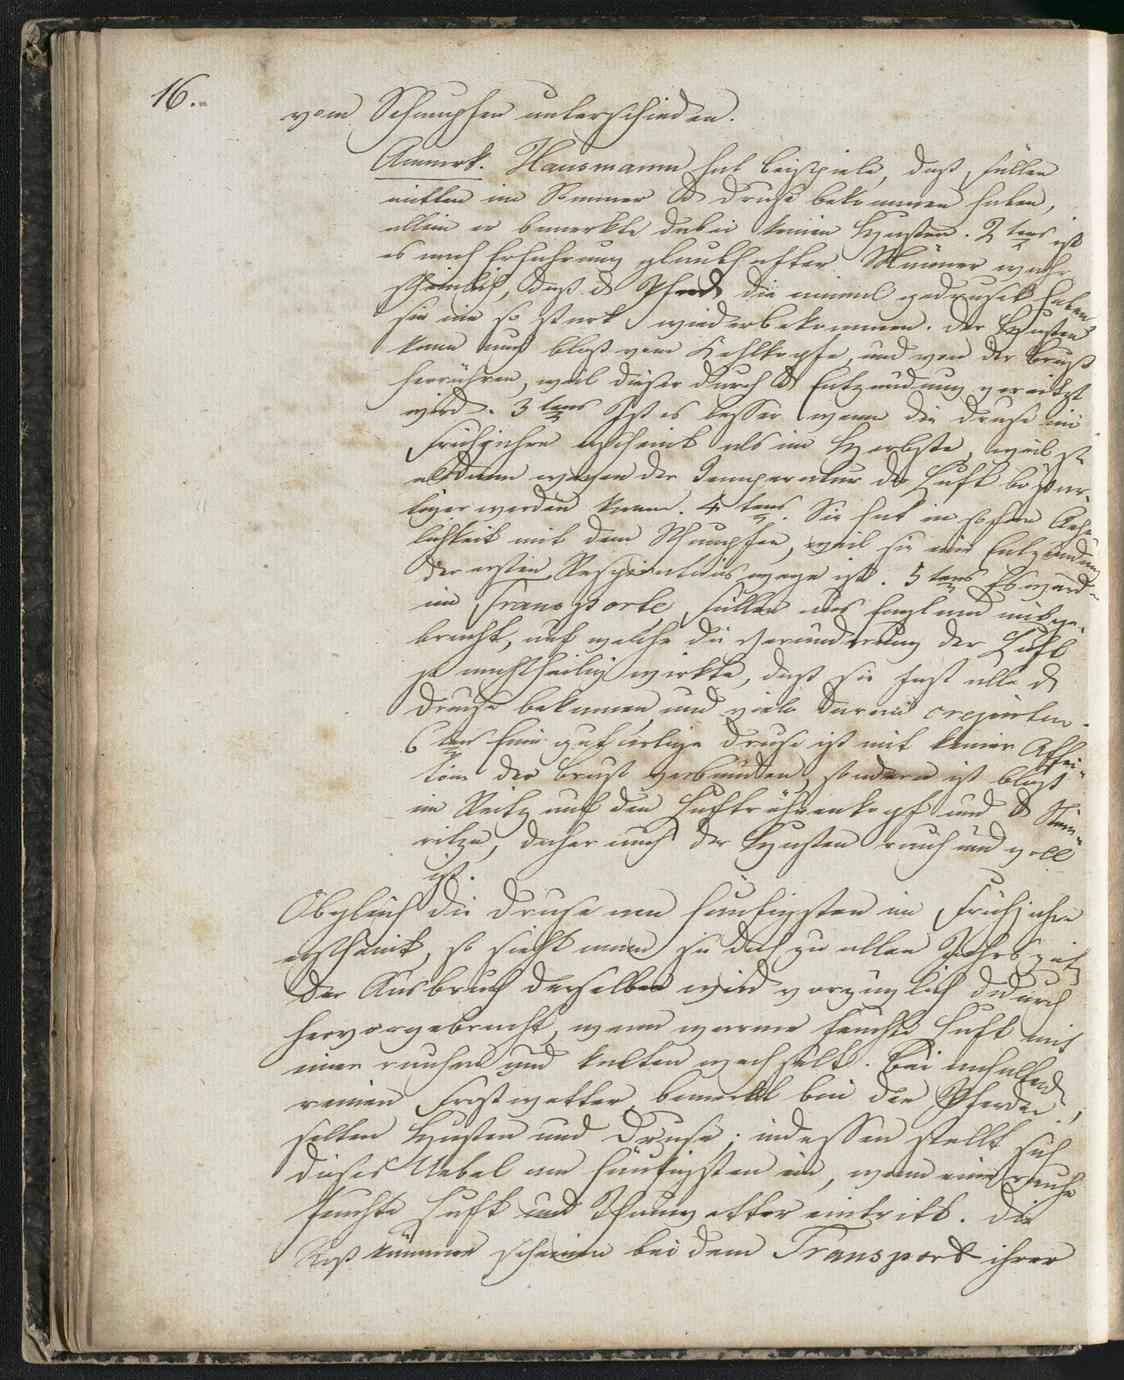 16.
vom Schnupfen unterschieden.
Anmerk. Hausmann hat beispiele, daß füllen
mitten im Sommer d. druse bekommen haben,
allein er bemerkte dabei keinen Husten. 2tens ist
es nach Erfahrung glaubhafter Männer wahr
scheinlich, daß d. Pferde die einmal gedruset haben
sie nie so stark wiederbekommen. der Husten
kann auch bloß vom Kehlkopfe, und von der Brust
herrühren, weil dieser durch d. Entzündung gereitzt
wird. 3tens Ist es besser wenn die druse im
Frühjahre erscheint als im Herbste, weil sie
alsdann wegen der Temperatur der Luft bösar-
tiger werden kann. 4tens. Sie hat in sofern Aehn
lichkeit mit dem Schnupfen, weil sie eine Entzündung
der ersten Respirations wege ist. 5tens Es ward
im Transporte füllen aus England mitge-
bracht, auf welche die Veränderung der Luft
so nachtheilig wirkte, daß sie fast alle d.
Druse bekamen und viele daran crepirten.
6tens Eine gutartige druse ist mit keiner Affec-
tion der brust verbunden, sondern ist bloß
im Reitz auf den Luftröhrenkopf und d. Stim-
ritze, daher auch der Husten rauh und voll
ist.
Obgleich die druse am häufigsten im Frühjahre
erscheint, so sieht man sie doch zu allen Jahrszeit
Der Ausbruch derselben wird vorzüglich dadurch
hervorgebracht, wenn warme feuchte Luft mit
einer rauhen und kalten wechselt. Bei anhaltend
reinen Frostwetter bemerkt bei den Pferden,
selten Husten und Druse; indessen stellt sich
dieses Uebel am häufigsten ein, wenn eine rauhe
feuchte Luft und Thauwetter eintritt. Die
Roßkämme scheinen bei dem Transport ihrer